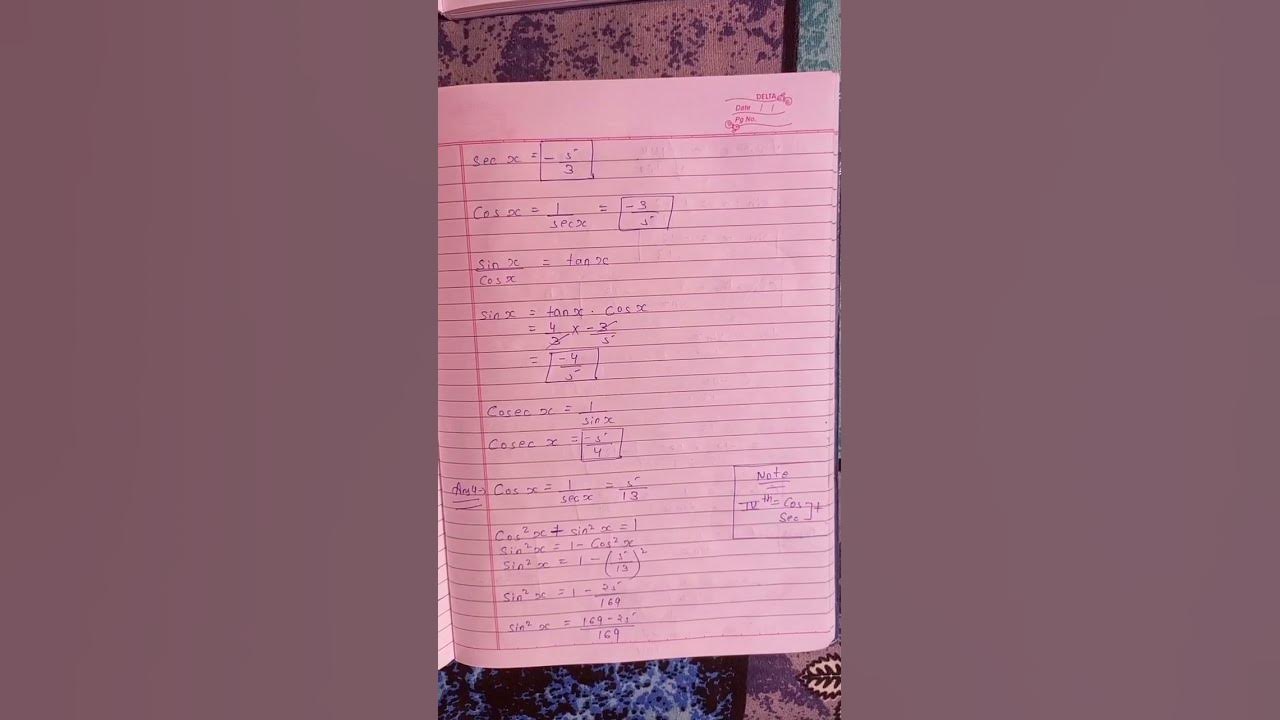 DELTA
Date / /
Pg No.
sec x = -5/3
Cos x = 1/sec x = -3/5
sin x/Cos x = tan x
sin x = tan x . Cos x
= 4/3 x -3/5
= -4/5
Cosec x = 1/sin x
Cosec x = -5/4
Ans 4→ Cos x = 1/sec x = 5/13
Cos²x + sin²x = 1
sin²x = 1 - Cos²x
sin²x = 1 - (5/13)²
sin²x = 1 - 25/169
sin²x = 169-25/169
Note
IVth = Cos
Sec ] +